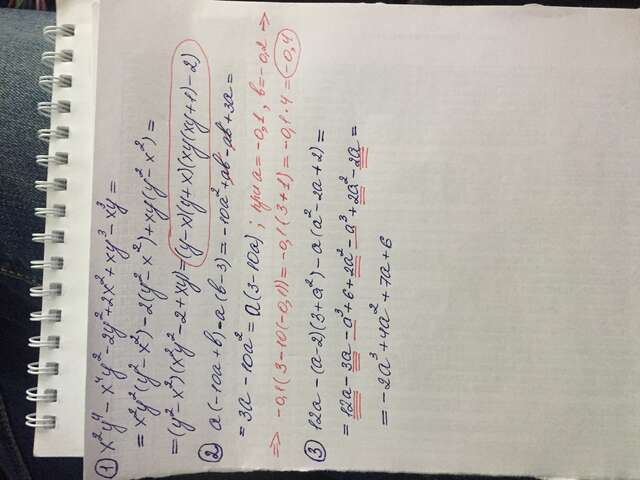 ① x²y⁴ - x⁴y² - 2y² + 2x² + xy³ - x³y =
= x²y²(y² - x²) - 2(y² - x²) + xy(y² - x²) =
= (y² - x²)(x²y² - 2 + xy) = (y - x)(y + x)(xy(xy + 1) - 2)
② a(-10a + b) - a(b - 3) = -10a² + ab - ab + 3a =
= 3a - 10a² = a(3 - 10a) ; при a = -0,1, b = -0,2 ⇒
⇒ -0,1(3 - 10(-0,1)) = -0,1(3 + 1) = -0,1 · 4 = -0,4
③ 12a - (a - 2)(3 + a²) - a(a² - 2a + 2) =
= 12a - 3a - a³ + 6 + 2a² - a³ + 2a² - 2a =
= -2a³ + 4a² + 7a + 6